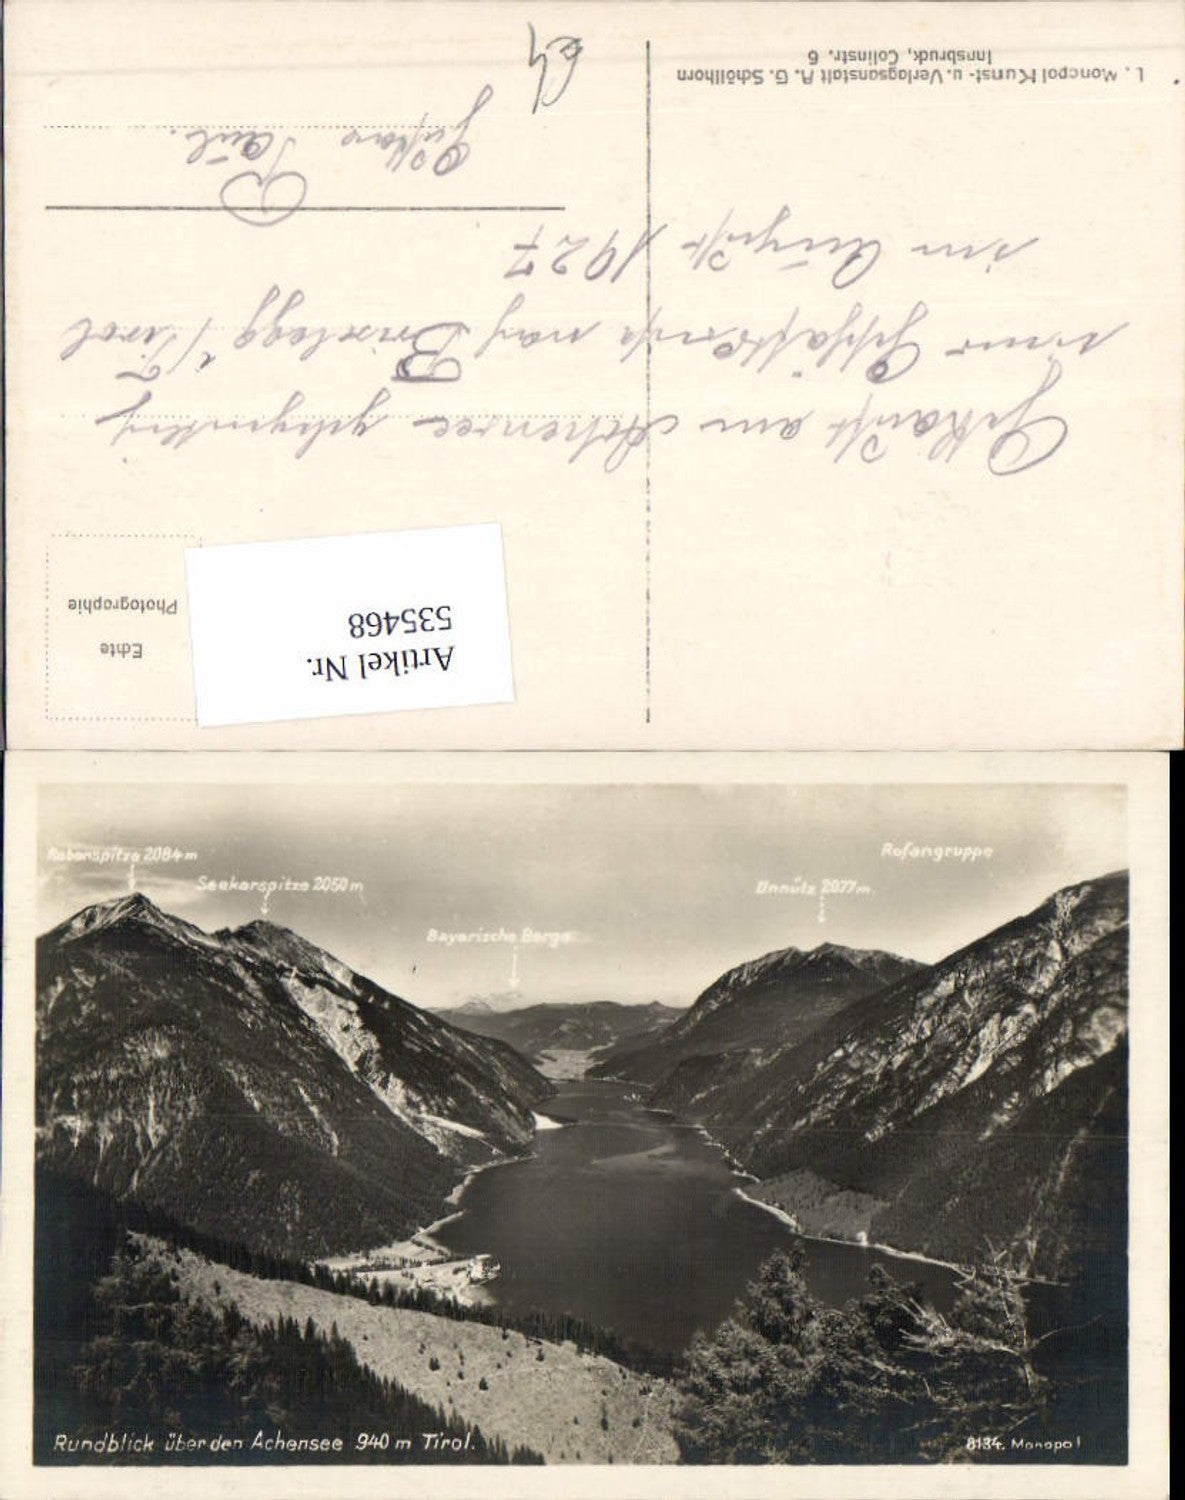 L. Monopol Kunst- u. Verlagsanstalt A. G. Schöllhorn
Innsbruck, Colinstr. 6
Echte
Photographie
Artikel Nr.
535468
Gekauft am Achensee gelegentlich
einer Geschäftsreise nach Brixlegg i/Tirol
im August 1927
Gustav Paul.
Rabenspitze 2084 m
Seekarspitze 2050 m
Bayerische Berge
Unnütz 2077 m
Rofangruppe
Rundblick über den Achensee 940 m Tirol.
8134. Monopol